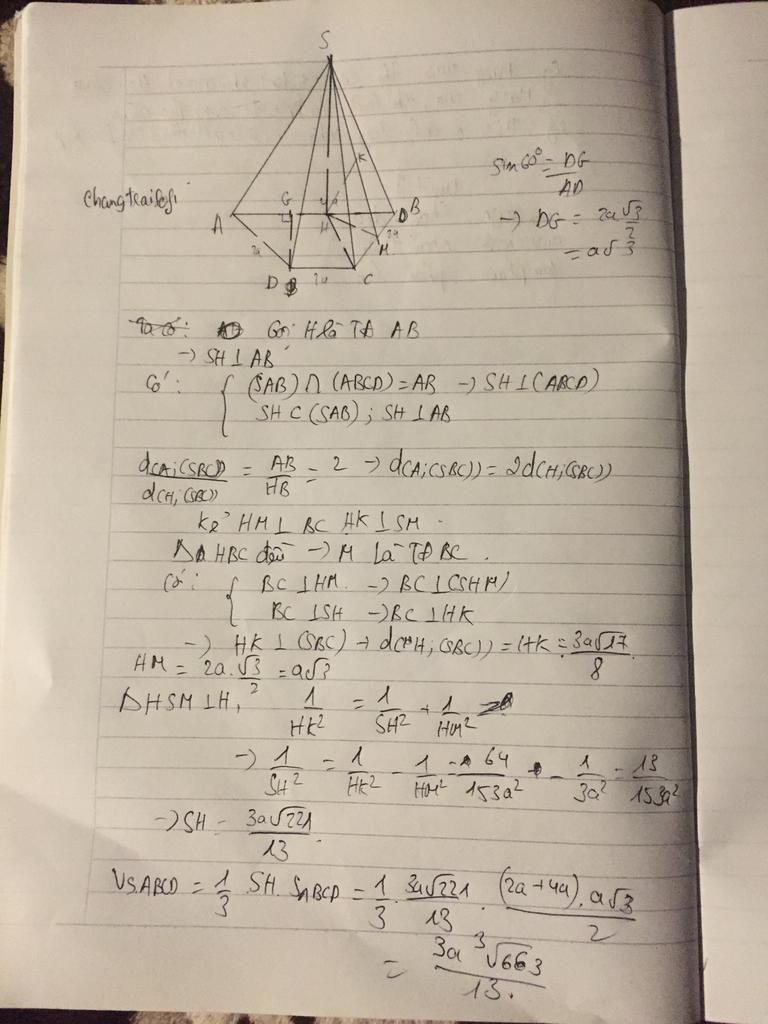 S
K
G
H
A
B
M
2a
2a
D
2a
C
sin60° = DG/AD
→ DG = 2a√3/2
= a√3
Gọi H là TĐ AB
→ SH ⊥ AB
Có: { (SAB) ∩ (ABCD) = AB → SH ⊥ (ABCD)
SH ⊂ (SAB); SH ⊥ AB
d(A;(SBC))/d(H;(SBC)) = AB/HB = 2 → d(A;(SBC)) = 2d(H;(SBC))
Kẻ HM ⊥ BC HK ⊥ SM.
Δ HBC đều → M là TĐ BC.
Có: { BC ⊥ HM. → BC ⊥ (SHM)
BC ⊥ SH → BC ⊥ HK
→ HK ⊥ (SBC) → d(H;(SBC)) = HK = 3a√17/8
HM = 2a.√3/2 = a√3
ΔHSM ⊥ H, 1/HK² = 1/SH² + 1/HM²
→ 1/SH² = 1/HK² - 1/HM² = 64/153a² - 1/3a² = 13/153a²
→ SH = 3a√221/13.
VS.ABCD = 1/3 .SH. SABCD = 1/3 . 3a√221/13 . (2a+4a).a√3/2
= 3a³√663/13.